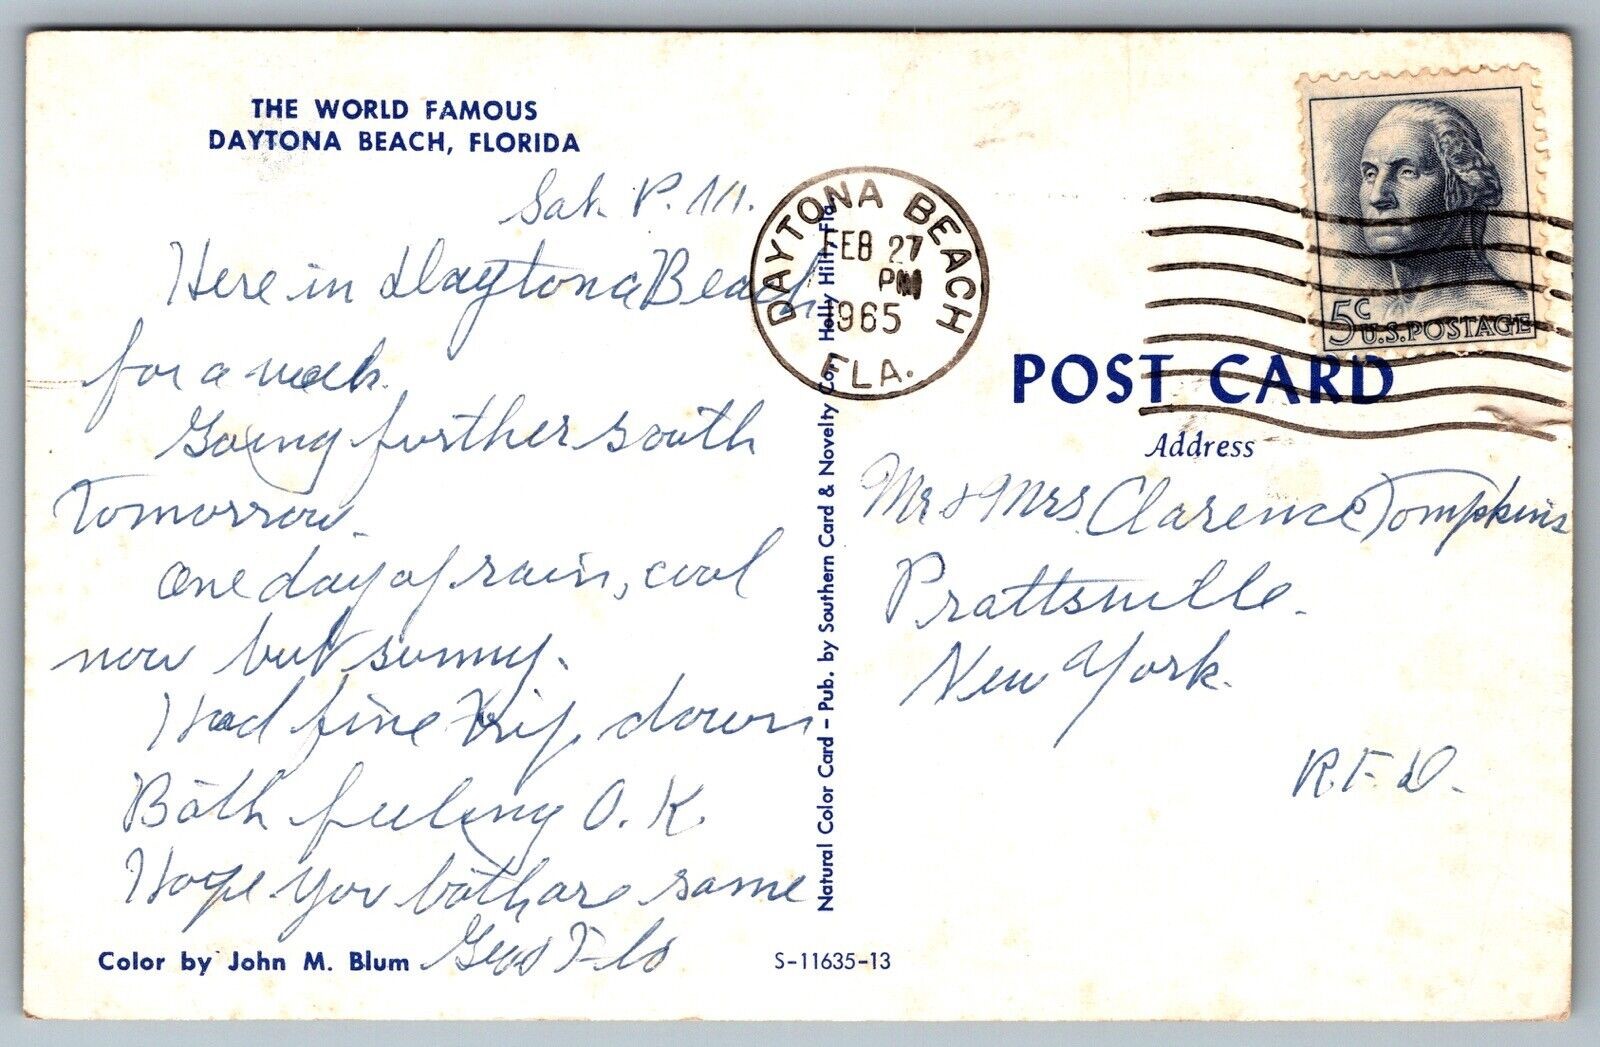 THE WORLD FAMOUS
DAYTONA BEACH, FLORIDA
Sat. P.M.
Here in Daytona Beach
for a week.
Going further south
Tomorrow.
One day of rain, cool
now but sunny.
Had fine trip down
Both feeling O.K.
Hope you both are same
Geo & Flo
Color by John M. Blum
S-11635-13
Natural Color Card - Pub. by Southern Card & Novelty Co., Holly Hill, Fla.
DAYTONA BEACH
FEB 27
PM
1965
FLA.
5c
U.S. POSTAGE
POST CARD
Address
Mr & Mrs Clarence Tompkins
Prattsville.
New York.
R.F.D.